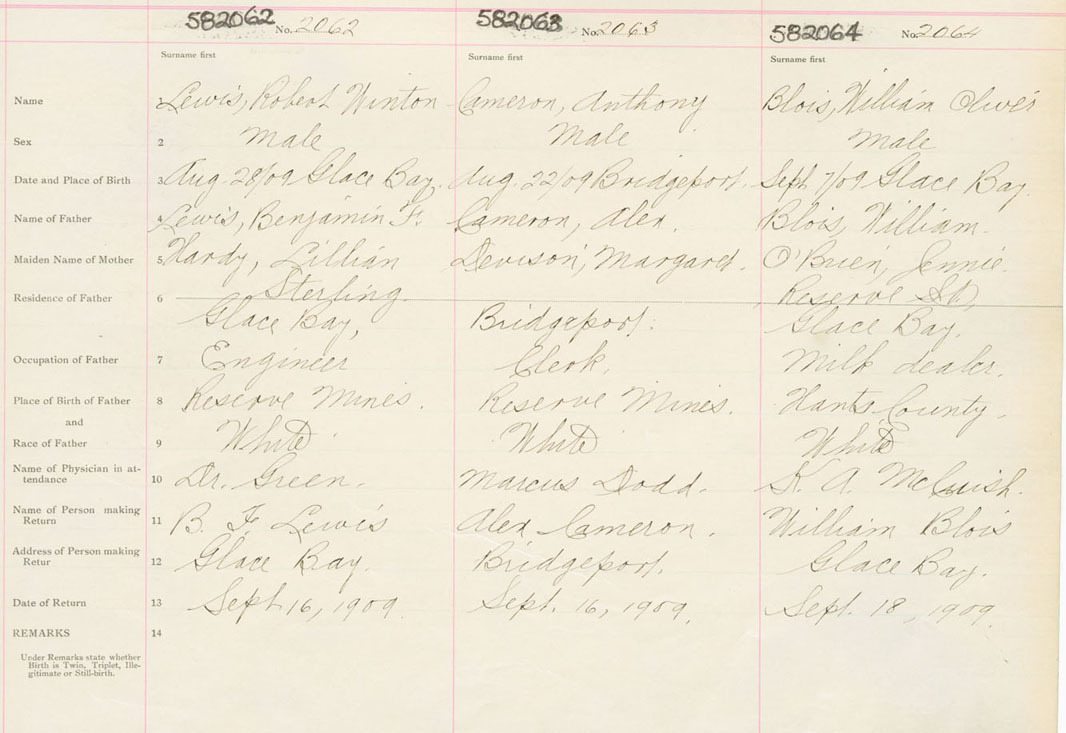 582062 No. 2062 582063 No. 2063 582064 No. 2064
Surname first Surname first Surname first
Name 1 Lewis, Robert Winton Cameron, Anthony Blois, William Oliver
Sex 2 Male Male Male
Date and Place of Birth 3 Aug. 28/09 Glace Bay. Aug. 22/09 Bridgeport. Sept 7/09 Glace Bay.
Name of Father 4 Lewis, Benjamin F. Cameron, Alex. Blois, William.
Maiden Name of Mother 5 Hardy, Lillian Devison, Margaret. O'Brien, Jennie.
Sterling. Reserve St,
Residence of Father 6
Glace Bay, Bridgeport. Glace Bay.
Occupation of Father 7 Engineer Clerk. Milk dealer.
Place of Birth of Father 8 Reserve Mines. Reserve Mines. Hants County.
and
Race of Father 9 White White White
Name of Physician in at-
tendance 10 Dr. Green. Marcus Dodd. K. A. McCuish.
Name of Person making
Return 11 B. F Lewis Alex Cameron. William Blois
Address of Person making
Retur 12 Glace Bay. Bridgeport. Glace Bay.
Date of Return 13 Sept 16, 1909. Sept. 16, 1909. Sept. 18, 1909.
REMARKS 14
Under Remarks state whether
Birth is Twin, Triplet, Ille-
gitimate or Still-birth.